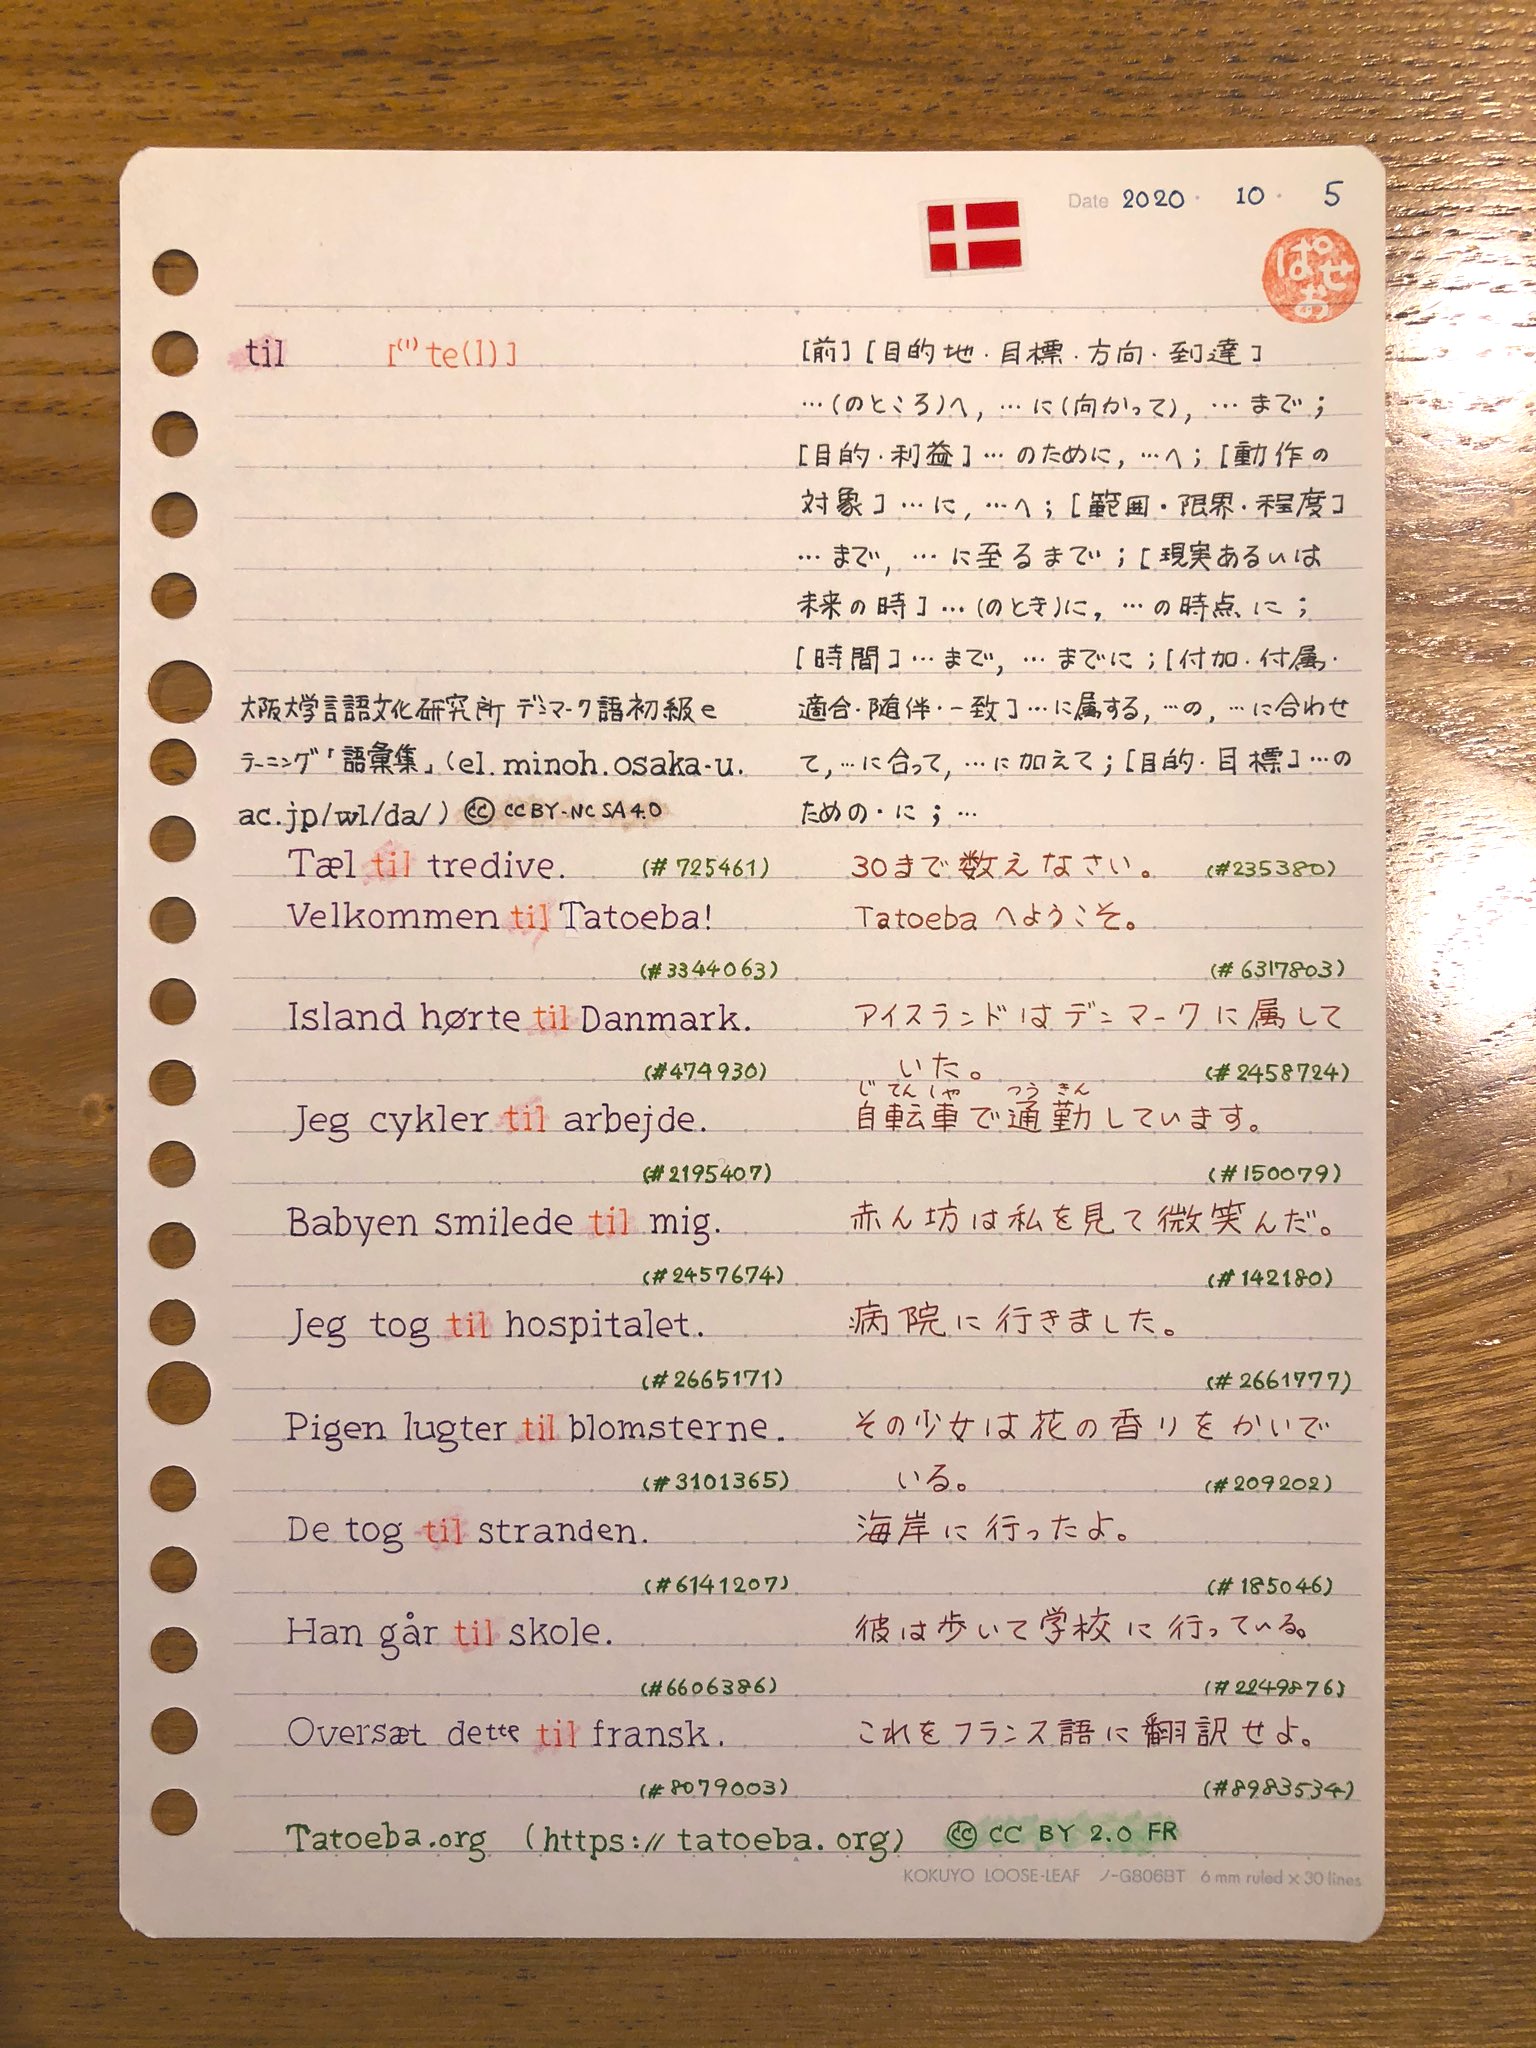 Date 2020 · 10 · 5
ぱせお
til [(ˈ)te(l)] [前] [目的地·目標·方向·到達]
…(のところ)へ, …に(向かって), …まで;
[目的·利益]…のために, …へ; [動作の
対象]…に, …へ; [範囲·限界·程度]
…まで, …に至るまで; [現実あるいは
未来の時]…(のとき)に, …の時点に;
[時間]…まで, …までに; [付加·付属·
大阪大学言語文化研究所 デンマーク語初級e 適合·随伴·一致]…に属する, …の, …に合わせ
ラーニング「語彙集」(el.minoh.osaka-u. て, …に合って, …に加えて; [目的·目標]…の
ac.jp/wl/da/) cc CC BY-NC SA 4.0 ための·に; …
Tæl til tredive. (#725461) 30まで数えなさい。 (#235380)
Velkommen til Tatoeba! Tatoebaへようこそ。
(#3344063) (#6317803)
Island hørte til Danmark. アイスランドはデンマークに属して
(#474930) いた。 (#2458724)
じてんしゃ つうきん
Jeg cykler til arbejde. 自転車で通勤しています。
(#2195407) (#150079)
Babyen smilede til mig. 赤ん坊は私を見て微笑んだ。
(#2457674) (#142180)
Jeg tog til hospitalet. 病院に行きました。
(#2665171) (#2661777)
Pigen lugter til blomsterne. その少女は花の香りをかいで
(#3101365) いる。 (#209202)
De tog til stranden. 海岸に行ったよ。
(#6141207) (#185046)
Han går til skole. 彼は歩いて学校に行っている。
(#6606386) (#2249876)
Oversæt dette til fransk. これをフランス語に翻訳せよ。
(#8079003) (#8983534)
Tatoeba.org (https://tatoeba.org) cc CC BY 2.0 FR
KOKUYO LOOSE-LEAF ノ-G806BT 6 mm ruled × 30 lines